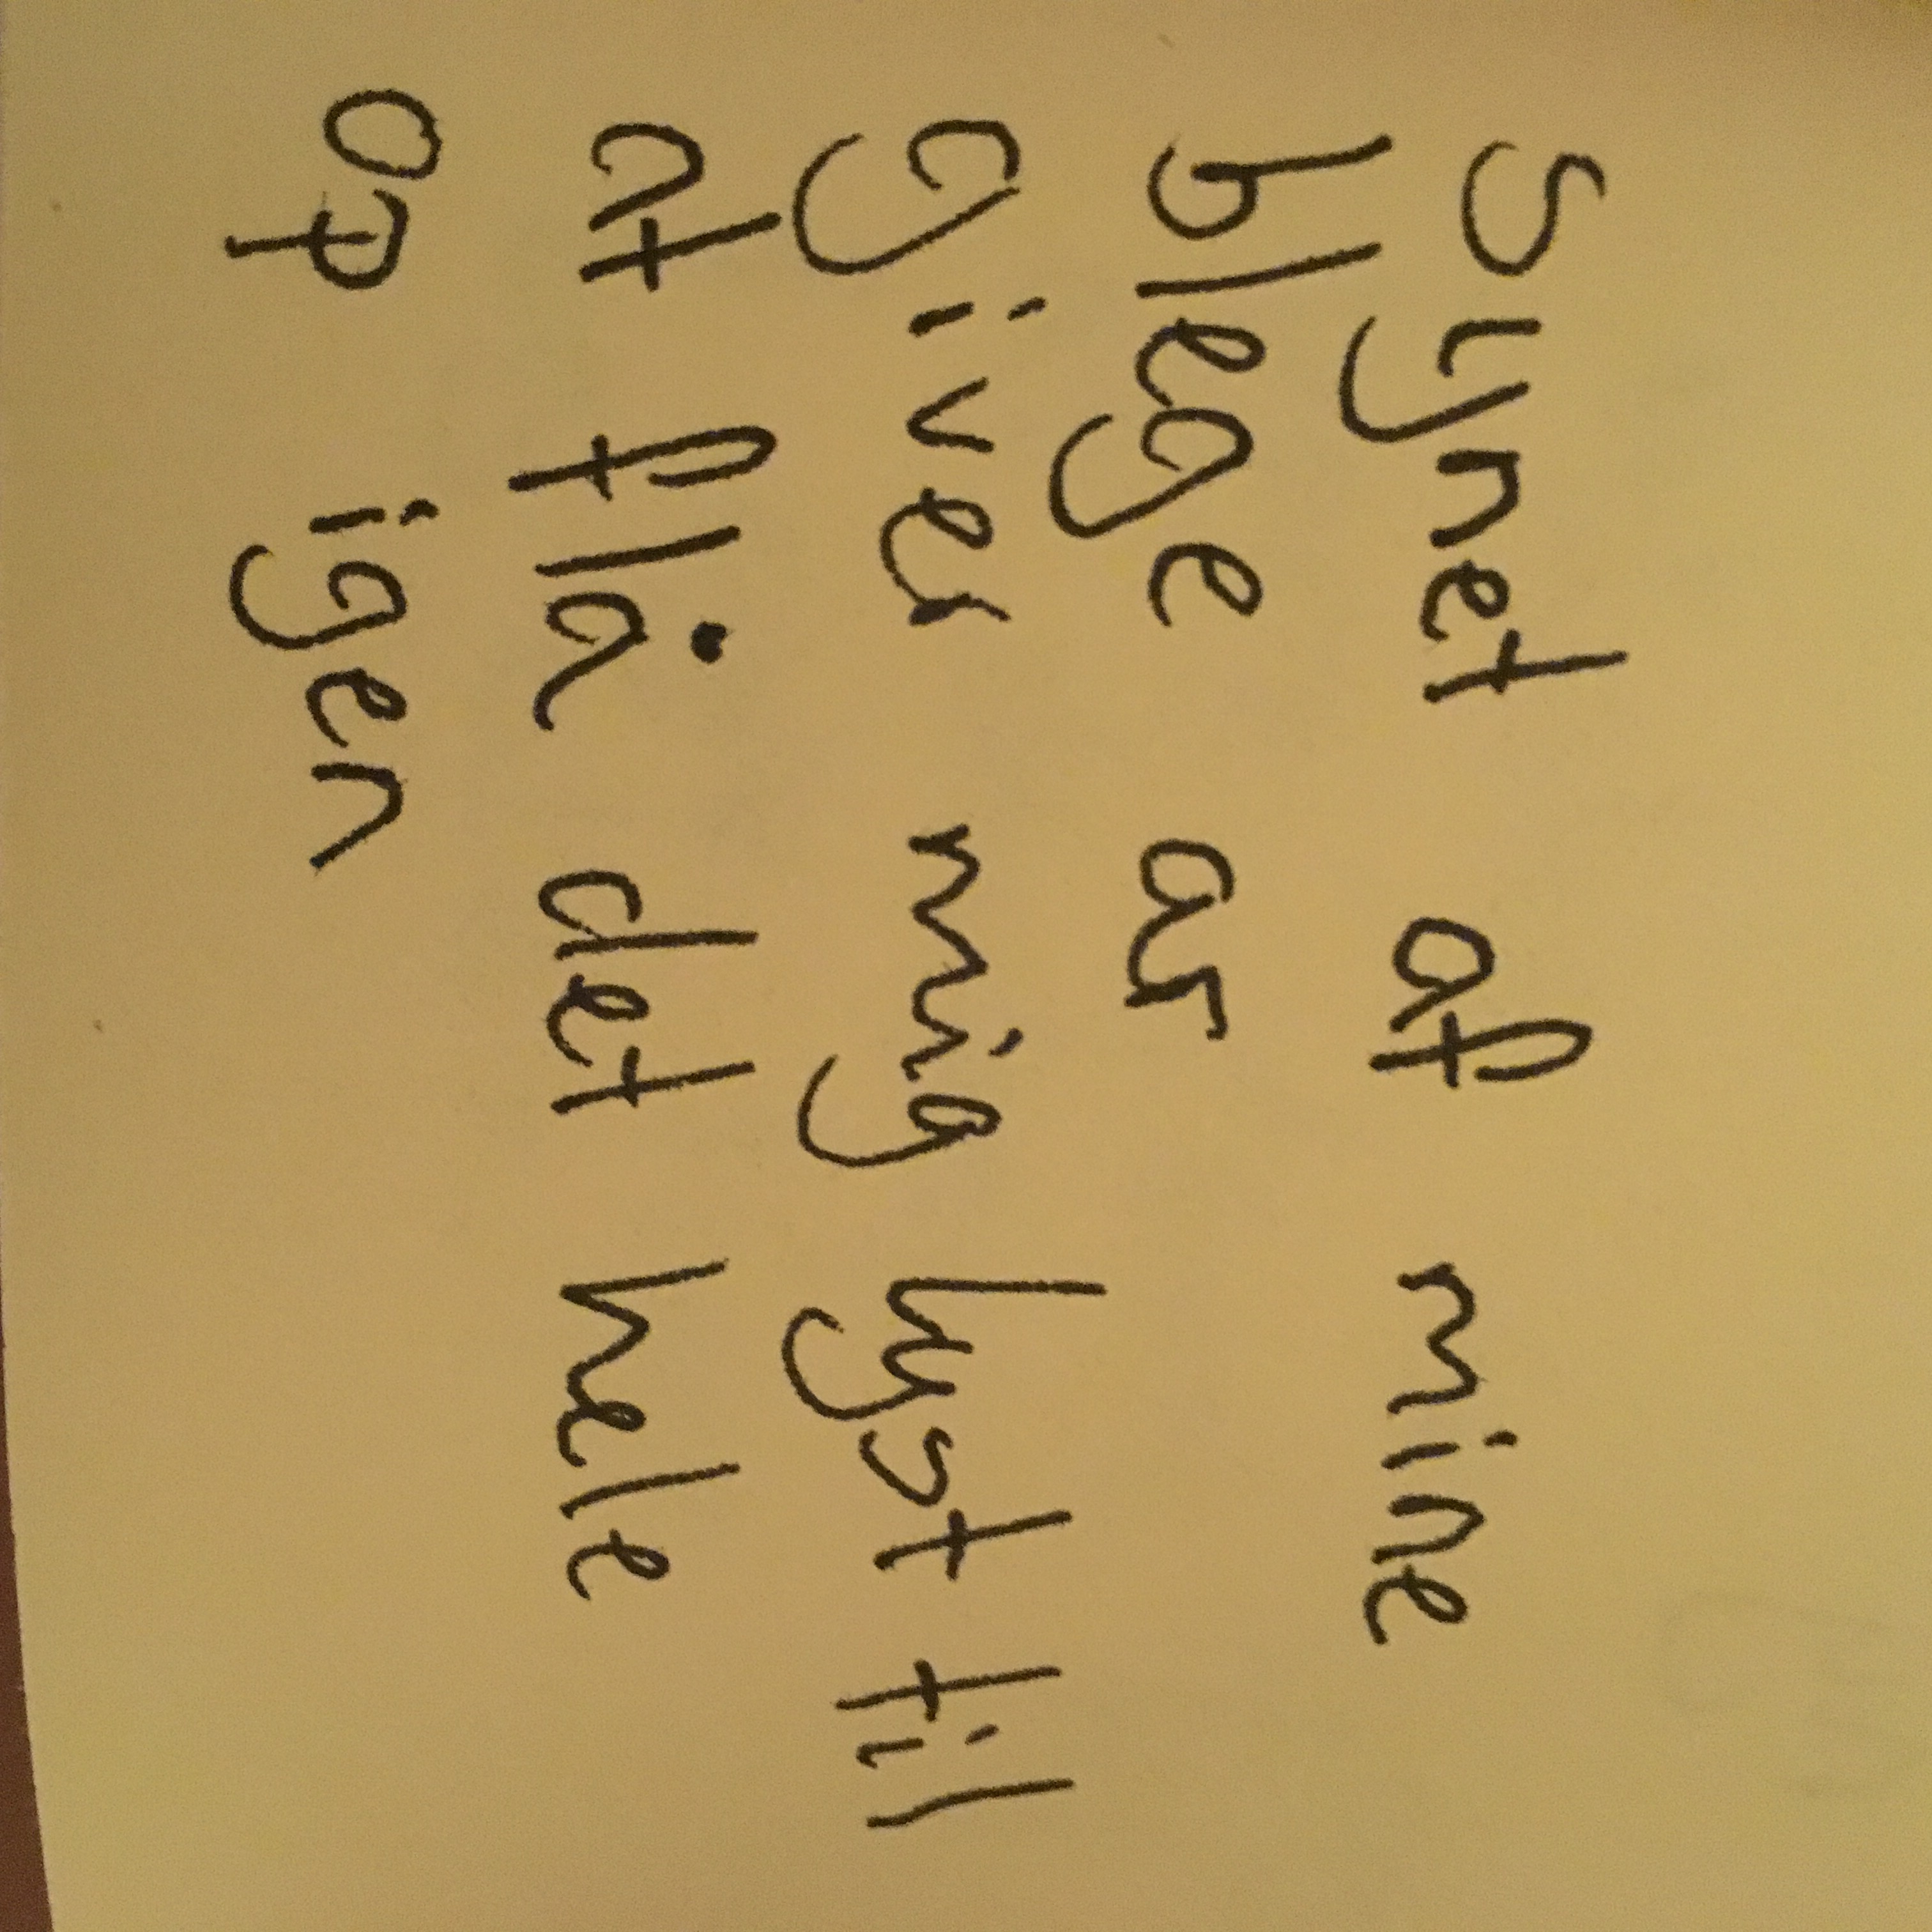 Synet af mine
blege ar
giver mig lyst til
at flå det hele
op igen